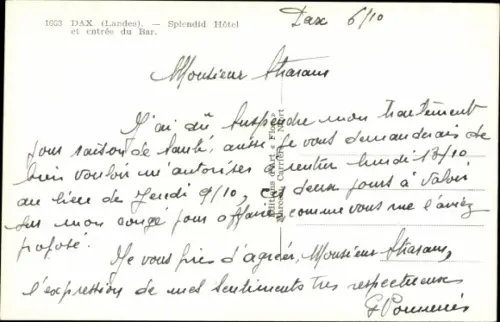 1623 DAX. (Landes). — Splendid Hôtel
et entrée du Bar.
Dax 6/10
Monsieur
J'ai dû suspendre mon traitement
pour raison de santé, aussi je vous demanderais de
bien vouloir m'autoriser à rentrer lundi 13/10
au lieu de Jeudi 9/10, ces deux jours à valoir
sur mon congé pour affaire, comme vous me l'aviez
proposé.
Je vous prie d'agréer, Monsieur
l'expression de mes sentiments très respectueux
Editions d'Art « Flor »
Marcel Carrière, Niort